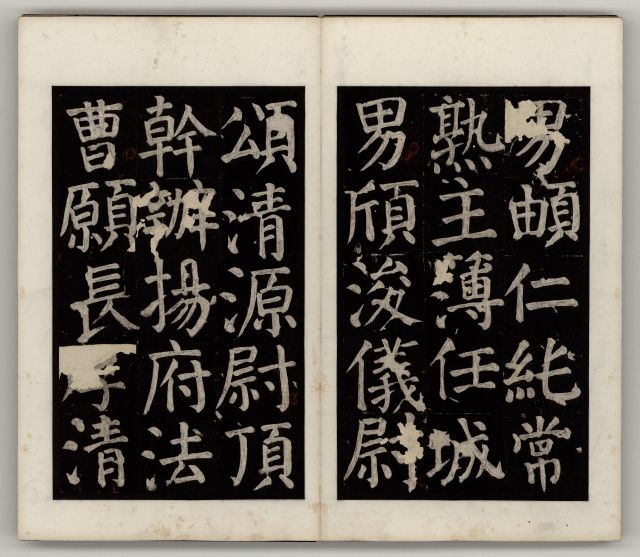 男頔仁純常
熟主薄任城
男頎浚儀尉
頌清源尉頂
幹辦揚府法
曹願長清